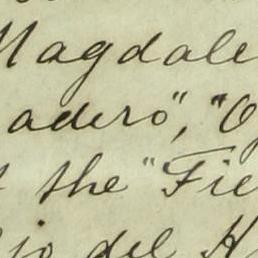 Magdale
adero", "O
the "Fie
jo del H